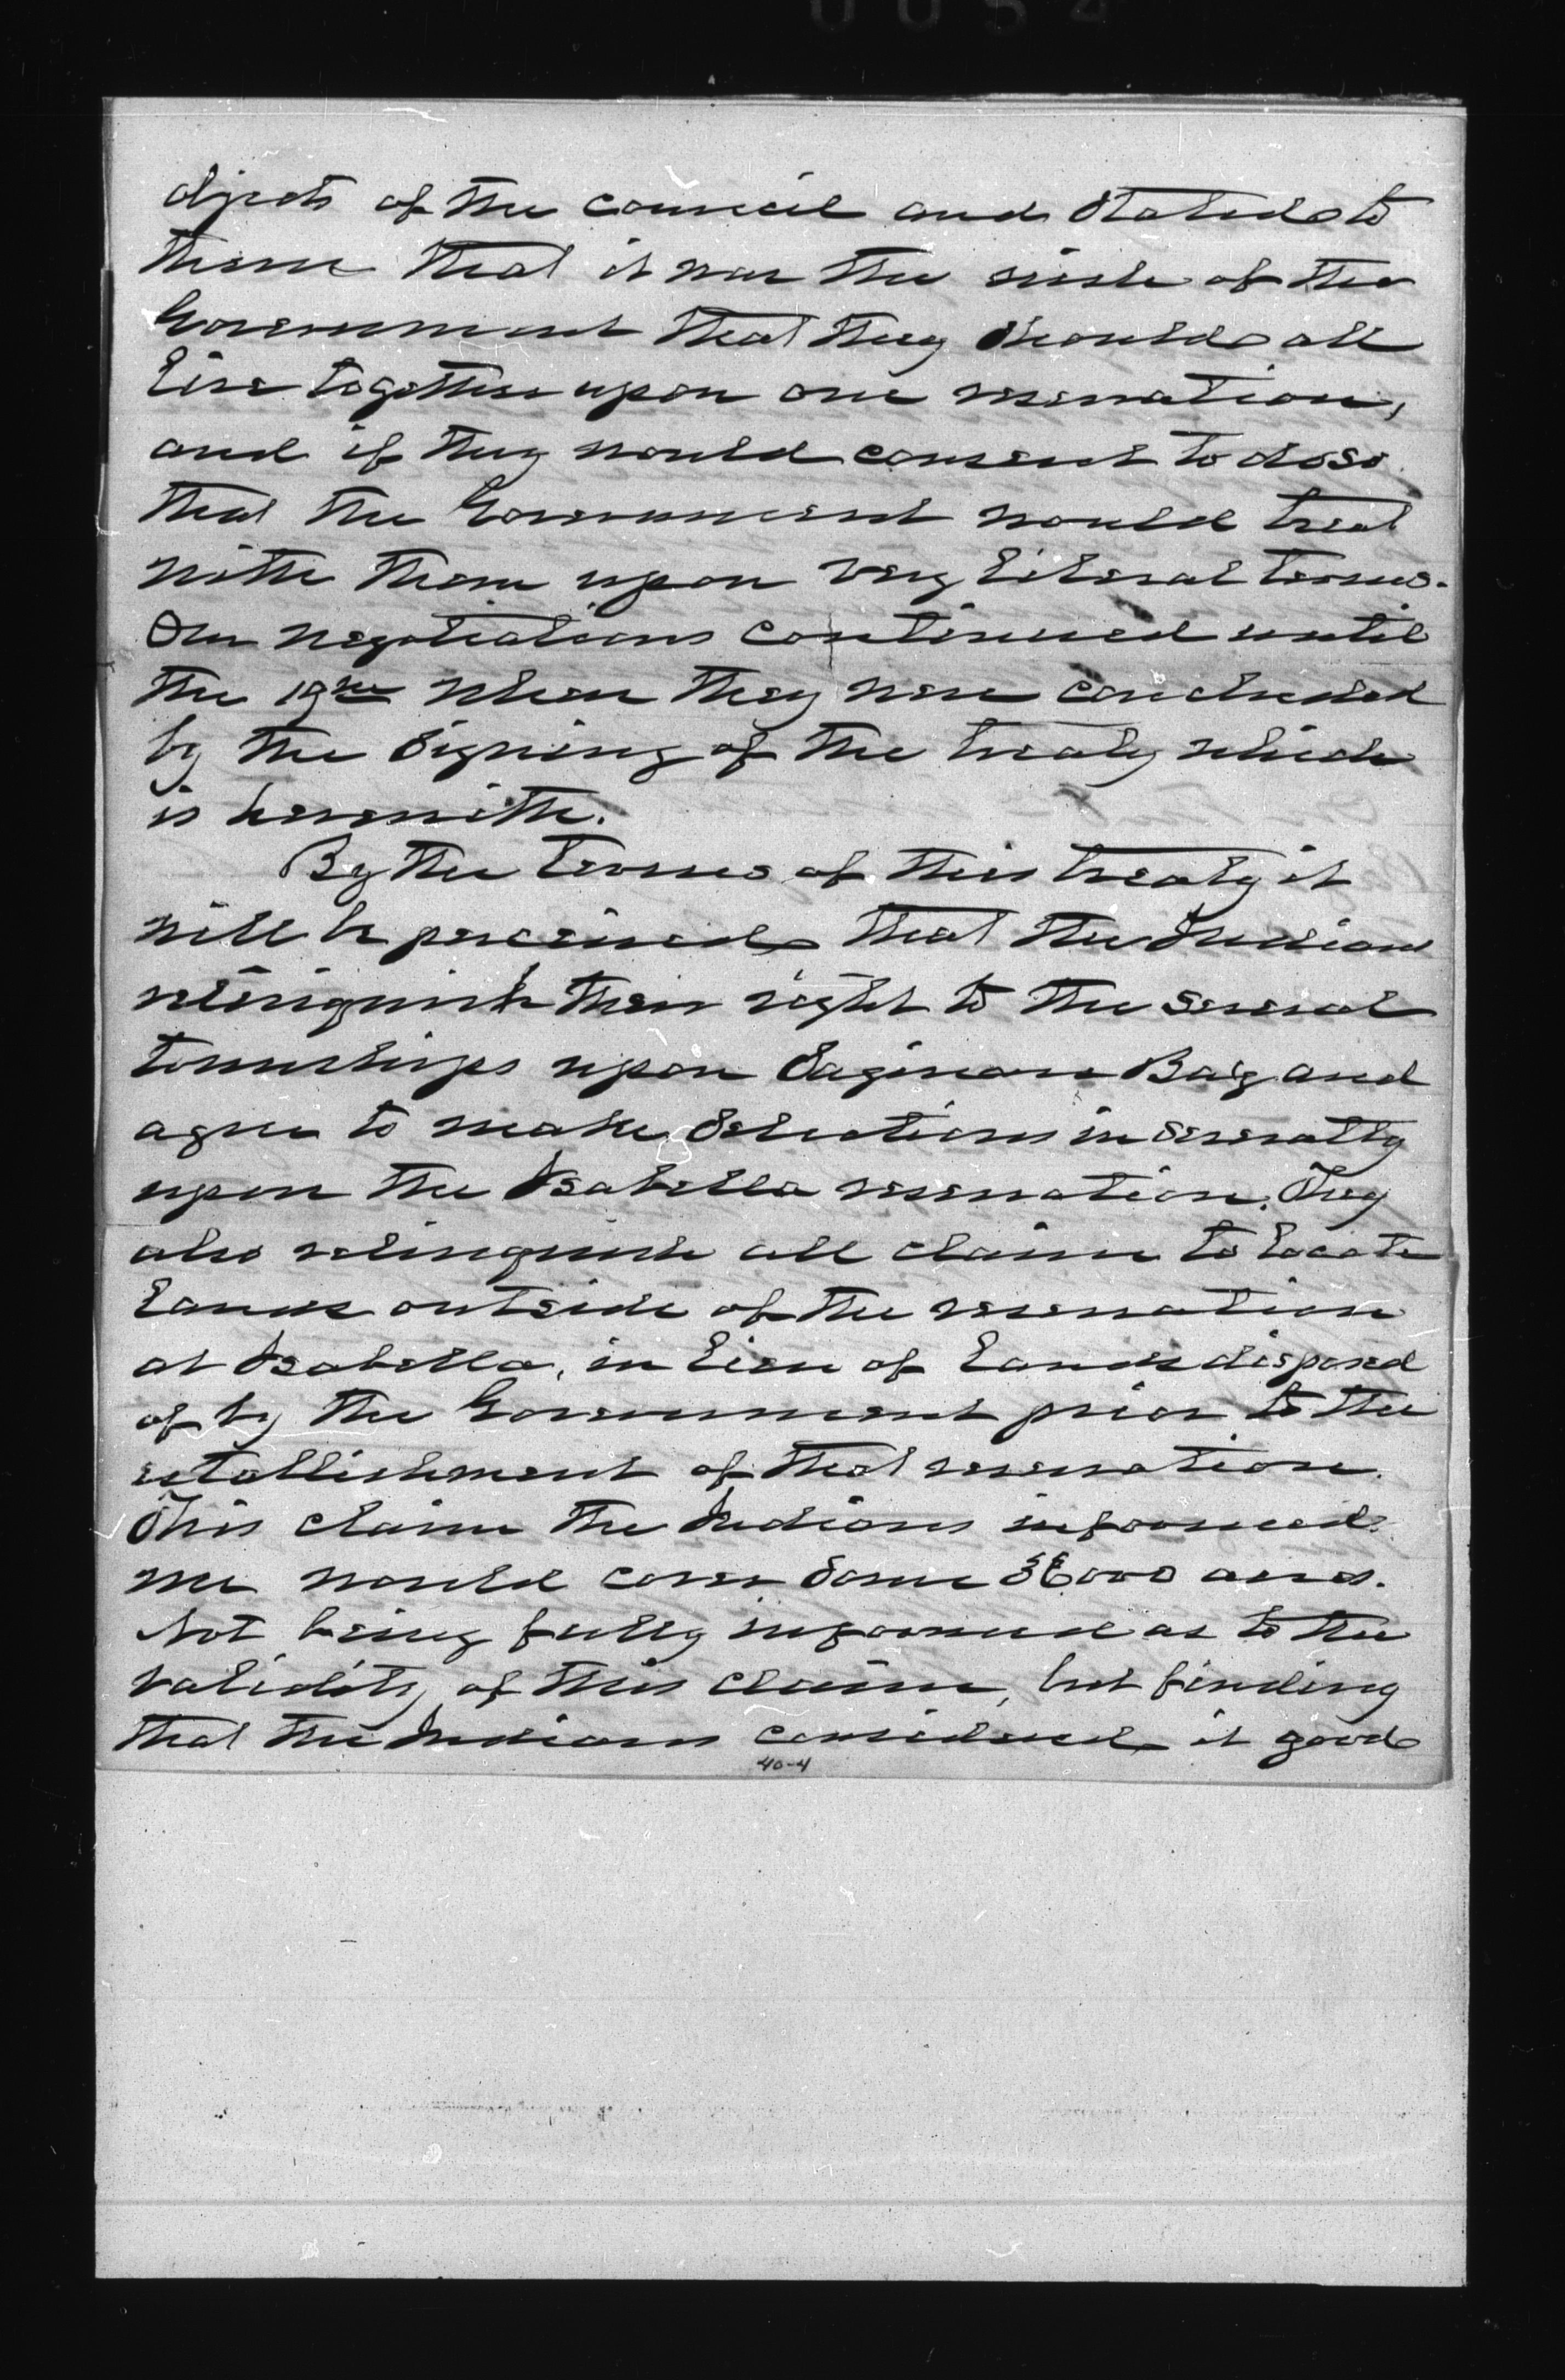 objects of the council and stated to
them that it was the wish of the
Government that they should all
live together upon one reservation,
and if they would consent to do so
that the Government would treat
with them upon very liberal terms.
Our negotiations continued until
the 19th when they were concluded
by the signing of the treaty which
is herewith.
By the terms of this treaty it
will be perceived that the Indians
relinquish their right to the several
townships upon Saginaw Bay and
agree to make selections in severalty
upon the Isabella reservation. They
also relinquish all claim to locate
lands outside of the reservation
at Isabella, in lieu of lands disposed
of by the Government prior to the
establishment of that reservation.
This claim the Indians informed
me would cover some acres.
Not being fully informed as to the
validity of this claim, but finding
that the Indians considered it good
40-4